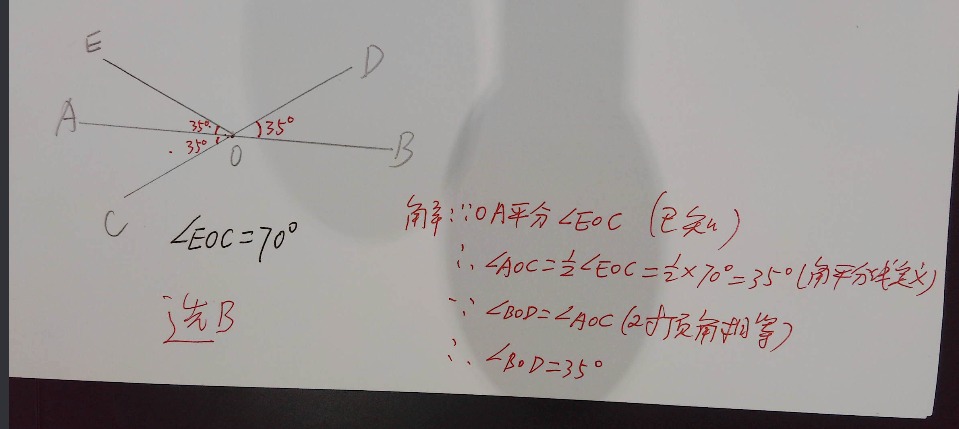 E
D
A
35°
35°
35°
O
B
C
∠EOC=70°
选B
解:∵OA平分∠EOC (已知)
∴∠AOC=½∠EOC=½×70°=35°(角平分线定义)
∵∠BOD=∠AOC(对顶角相等)
∴∠BOD=35°